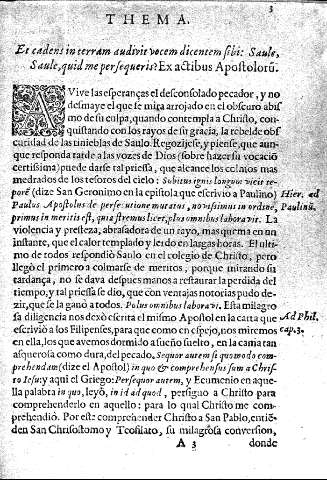 3
THEMA.
Et cadens in terram audivit vocem dicentem sibi: Saule,
Saule, quid me persequeris? Ex actibus Apostolorũ.
AVive las esperanças el desconsolado pecador, y no
desmaye el que se mira arrojado en el obscuro abis
mo de su culpa, quando contempla a Christo, con-
quistando con los rayos de su gracia, la rebelde obs
curidad de las tinieblas de Saulo. Regozijese, y piense, que aun-
que responda tarde a las vozes de Dios (sobre hazer su vocació
certissima) puede darse tal priessa, que alcance los colmos mas
medrados de los tesoros del cielo: Subitus ignis longum vicit te-
porẽ (dize San Geronimo en la epistola que escrivio a Paulino)
Paulus Apostolus de persecutione mutatus, novissimus in ordine,
primus in meritis est, quia extremus licet, plus omnibus laboravit. La
Hier. ad
Paulinũ.
violencia y presteza, abrasadora de un rayo, mas quema en un
instante, que el calor templado y lerdo en largas horas. El ulti-
mo de todos respondio Saulo en el colegio de Christo, pero
llegò el primero a colmarse de meritos, porque mirando su
tardança, no se dava despues manos a restaurar la perdida del
tiempo, y tal priessa se dio, que con ventajas notorias pudo de-
zir, que se la ganò a todos. Plus omnibus laboravit. Esta milagro
sa diligencia nos dexò escrita el mismo Apostol en la carta que
escriviò a los Filipenses, para que como en espejo, nos miremos
en ella, los que avemos dormido a sueño suelto, en la cama tan
asquerosa como dura, del pecado. Sequor autem si quomodo com-
Ad Phil.
cap. 3.
prehendam (dize el Apostol) in quo & comprehensus sum a Chris-
to Iesu; y aqui el Griego: Persequor autem, y Ecumenio en aque-
lla palabra in quo, leyò, in id ad quod, persiguo a Christo para
comprehenderlo en aquello: para lo qual Christo me com-
prehendiò. Por este comprehender Christo a San Pablo, entiẽ-
den San Chrisostomo y Teofilato, su milagrosa conversion,
A 3
donde